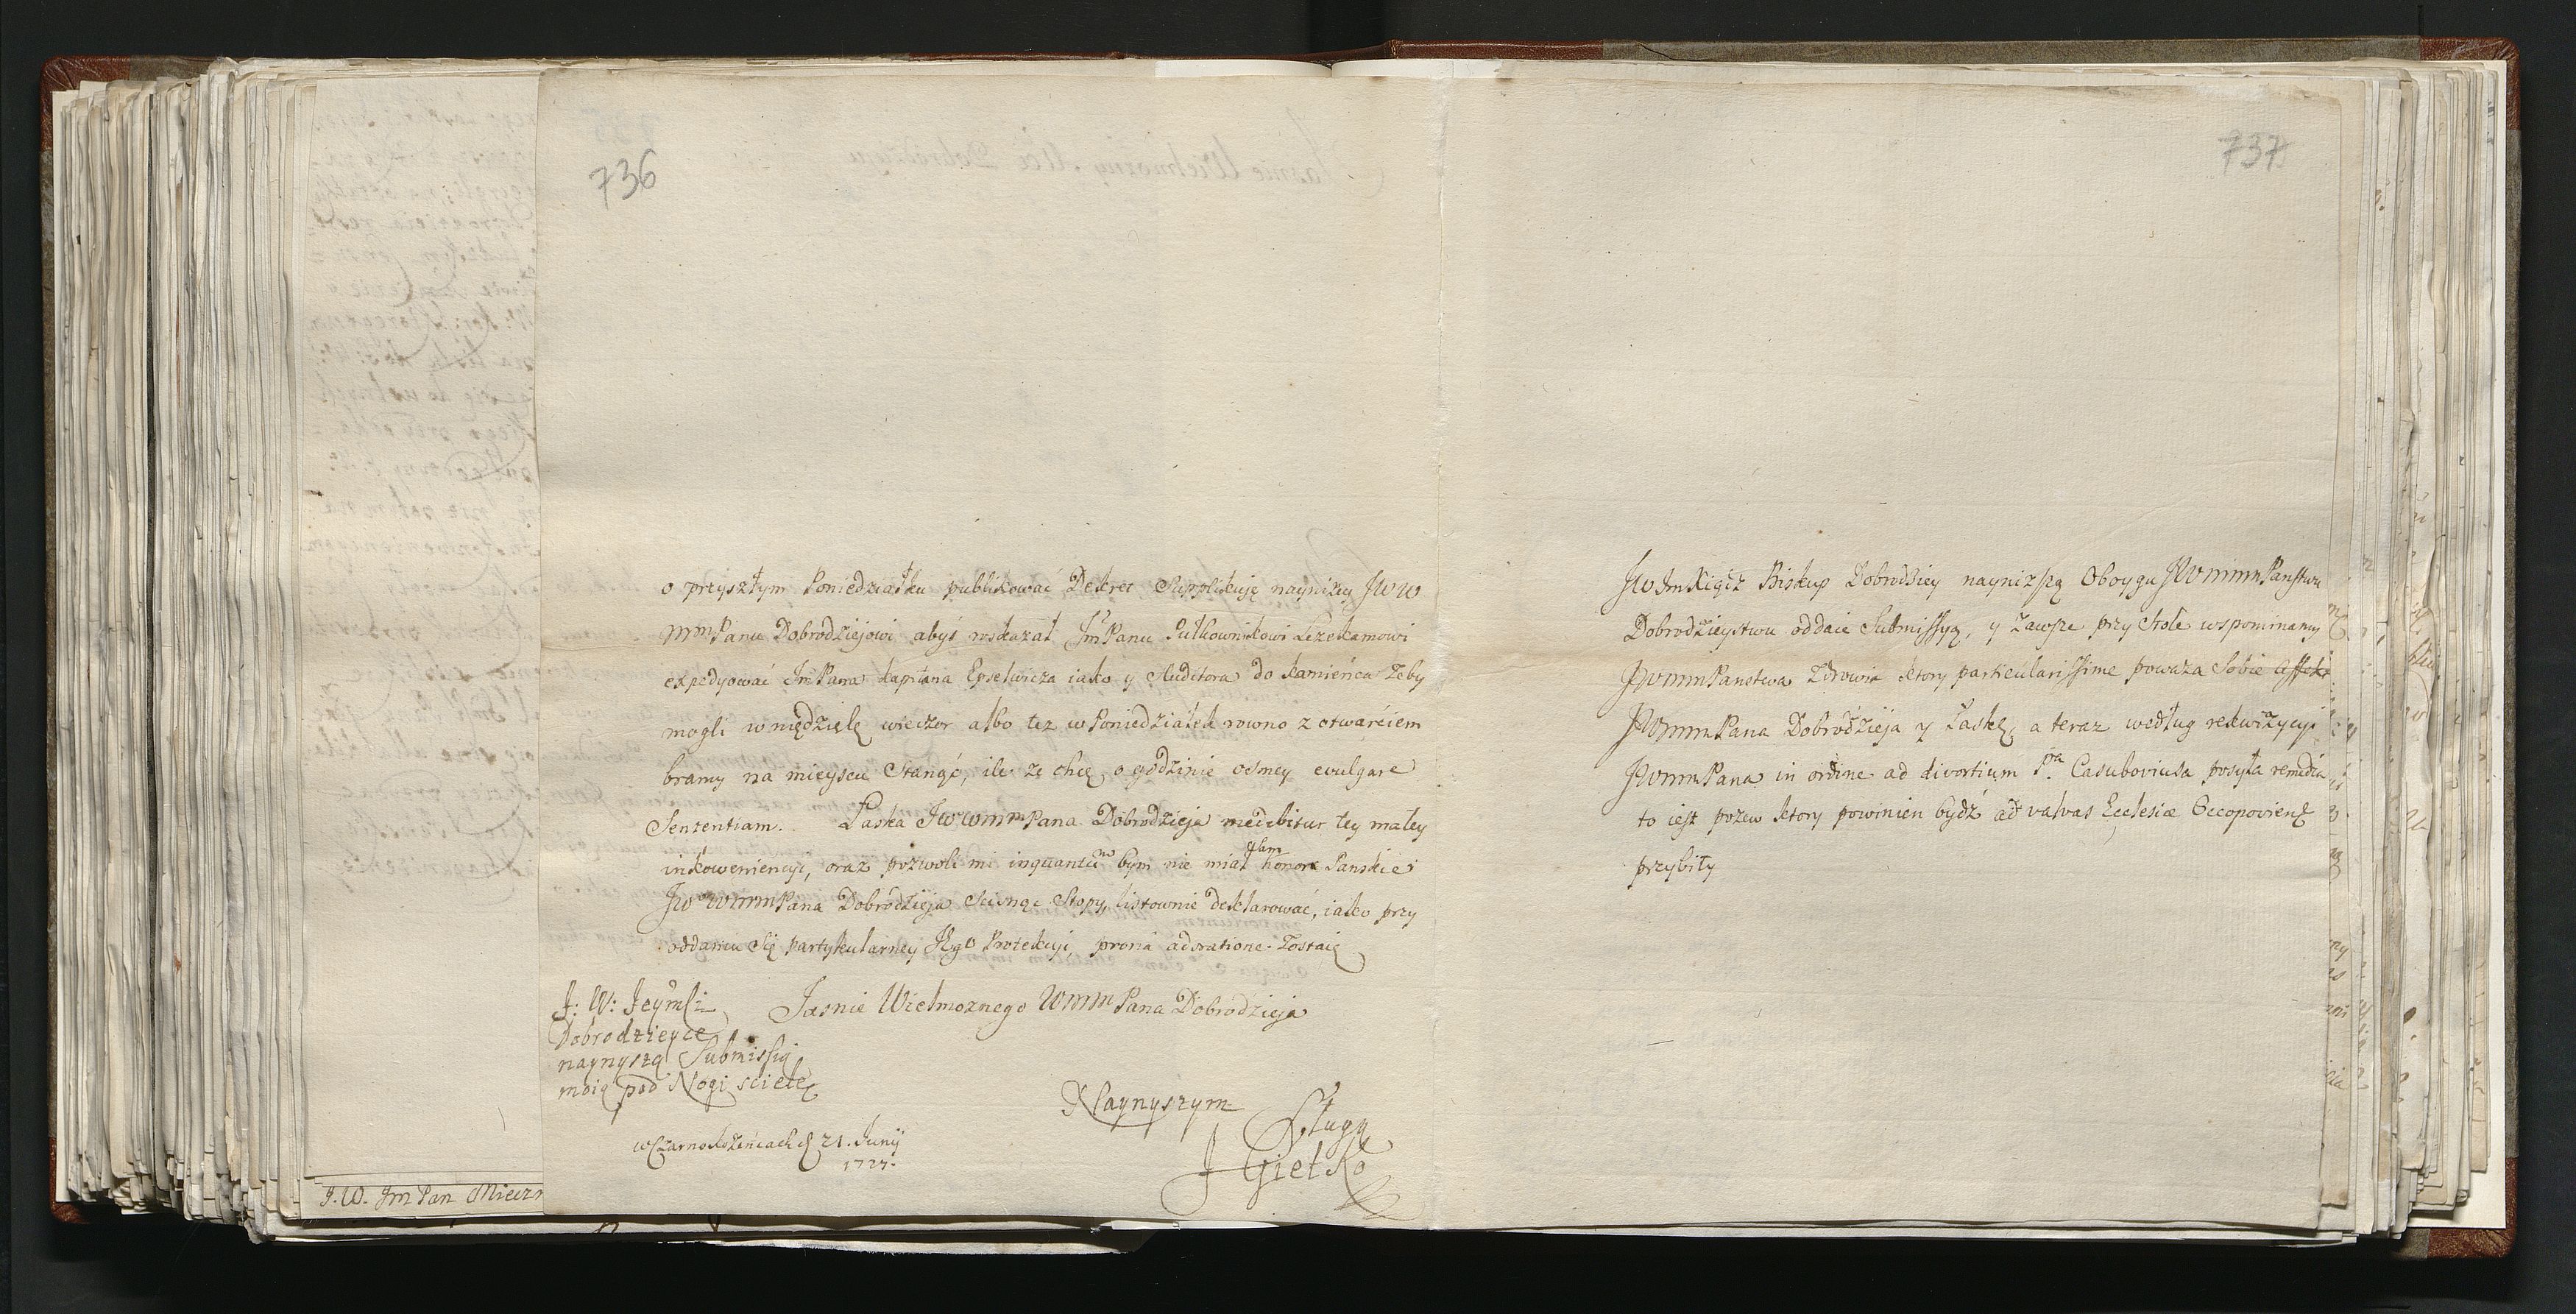 736
o przyszłym Poniedziałku publikować Dekret Supplikuję nayniżey JWW
MMPanu Dobrodziejowi abyś wskazał JmPanu Pułkownikowi
expedyować JmPana kapitana Epselwicza iako y Auditora do Kamieńca żeby
mogli w nędzielę wieczor albo tez w Poniedziałek rowno z otwarciem
bramy na mieyscu Stanąć, ile ze chcę o godzinie osmey evulgare
Sententiam. Łaska JWWMMPana Dobrodzieja medebitur tey małey
inkoweniencyi, oraz pozwoli mi inquantum bym nie miał honor Panskie
JWWMMPana Dobrodzieja Scisnąć Stopy, listownie deklarować, iako przy
oddaniu Się partykularney JEgo Protekcyi, pronâ adoratione Zostaię
Jasnie Wielmoznego WMMPana Dobrodzieja
J: W: Jeymści
Dobrodzieyce
naynyszą Submissią
moią pod Nogi scielę
Naynyszym
Sługą
J Giełko
w Czarnokozieńcach d 21. Junij
1727.
J. W. Jm Pan Mieczn
737
JWJmXiądz Biskup Dobrodziey nayniższą Oboygu JWMMMPanstwu
Dobrodzieystwu oddaie Submissyą, y zawsze przy stole wspominamy
JWMMMPanstwa Zdrowie ktory particularissime powaza Sobie affekt
JWMMMPana Dobrodzieja y łaskę, a teraz według rekwizycyi
JWMMMPana in ordine ad divortium Pna Casuboviusa posyła remedia
to iest pozew ktory powinien bydź ad valvas Ecclesiæ Occopoviens
przybity